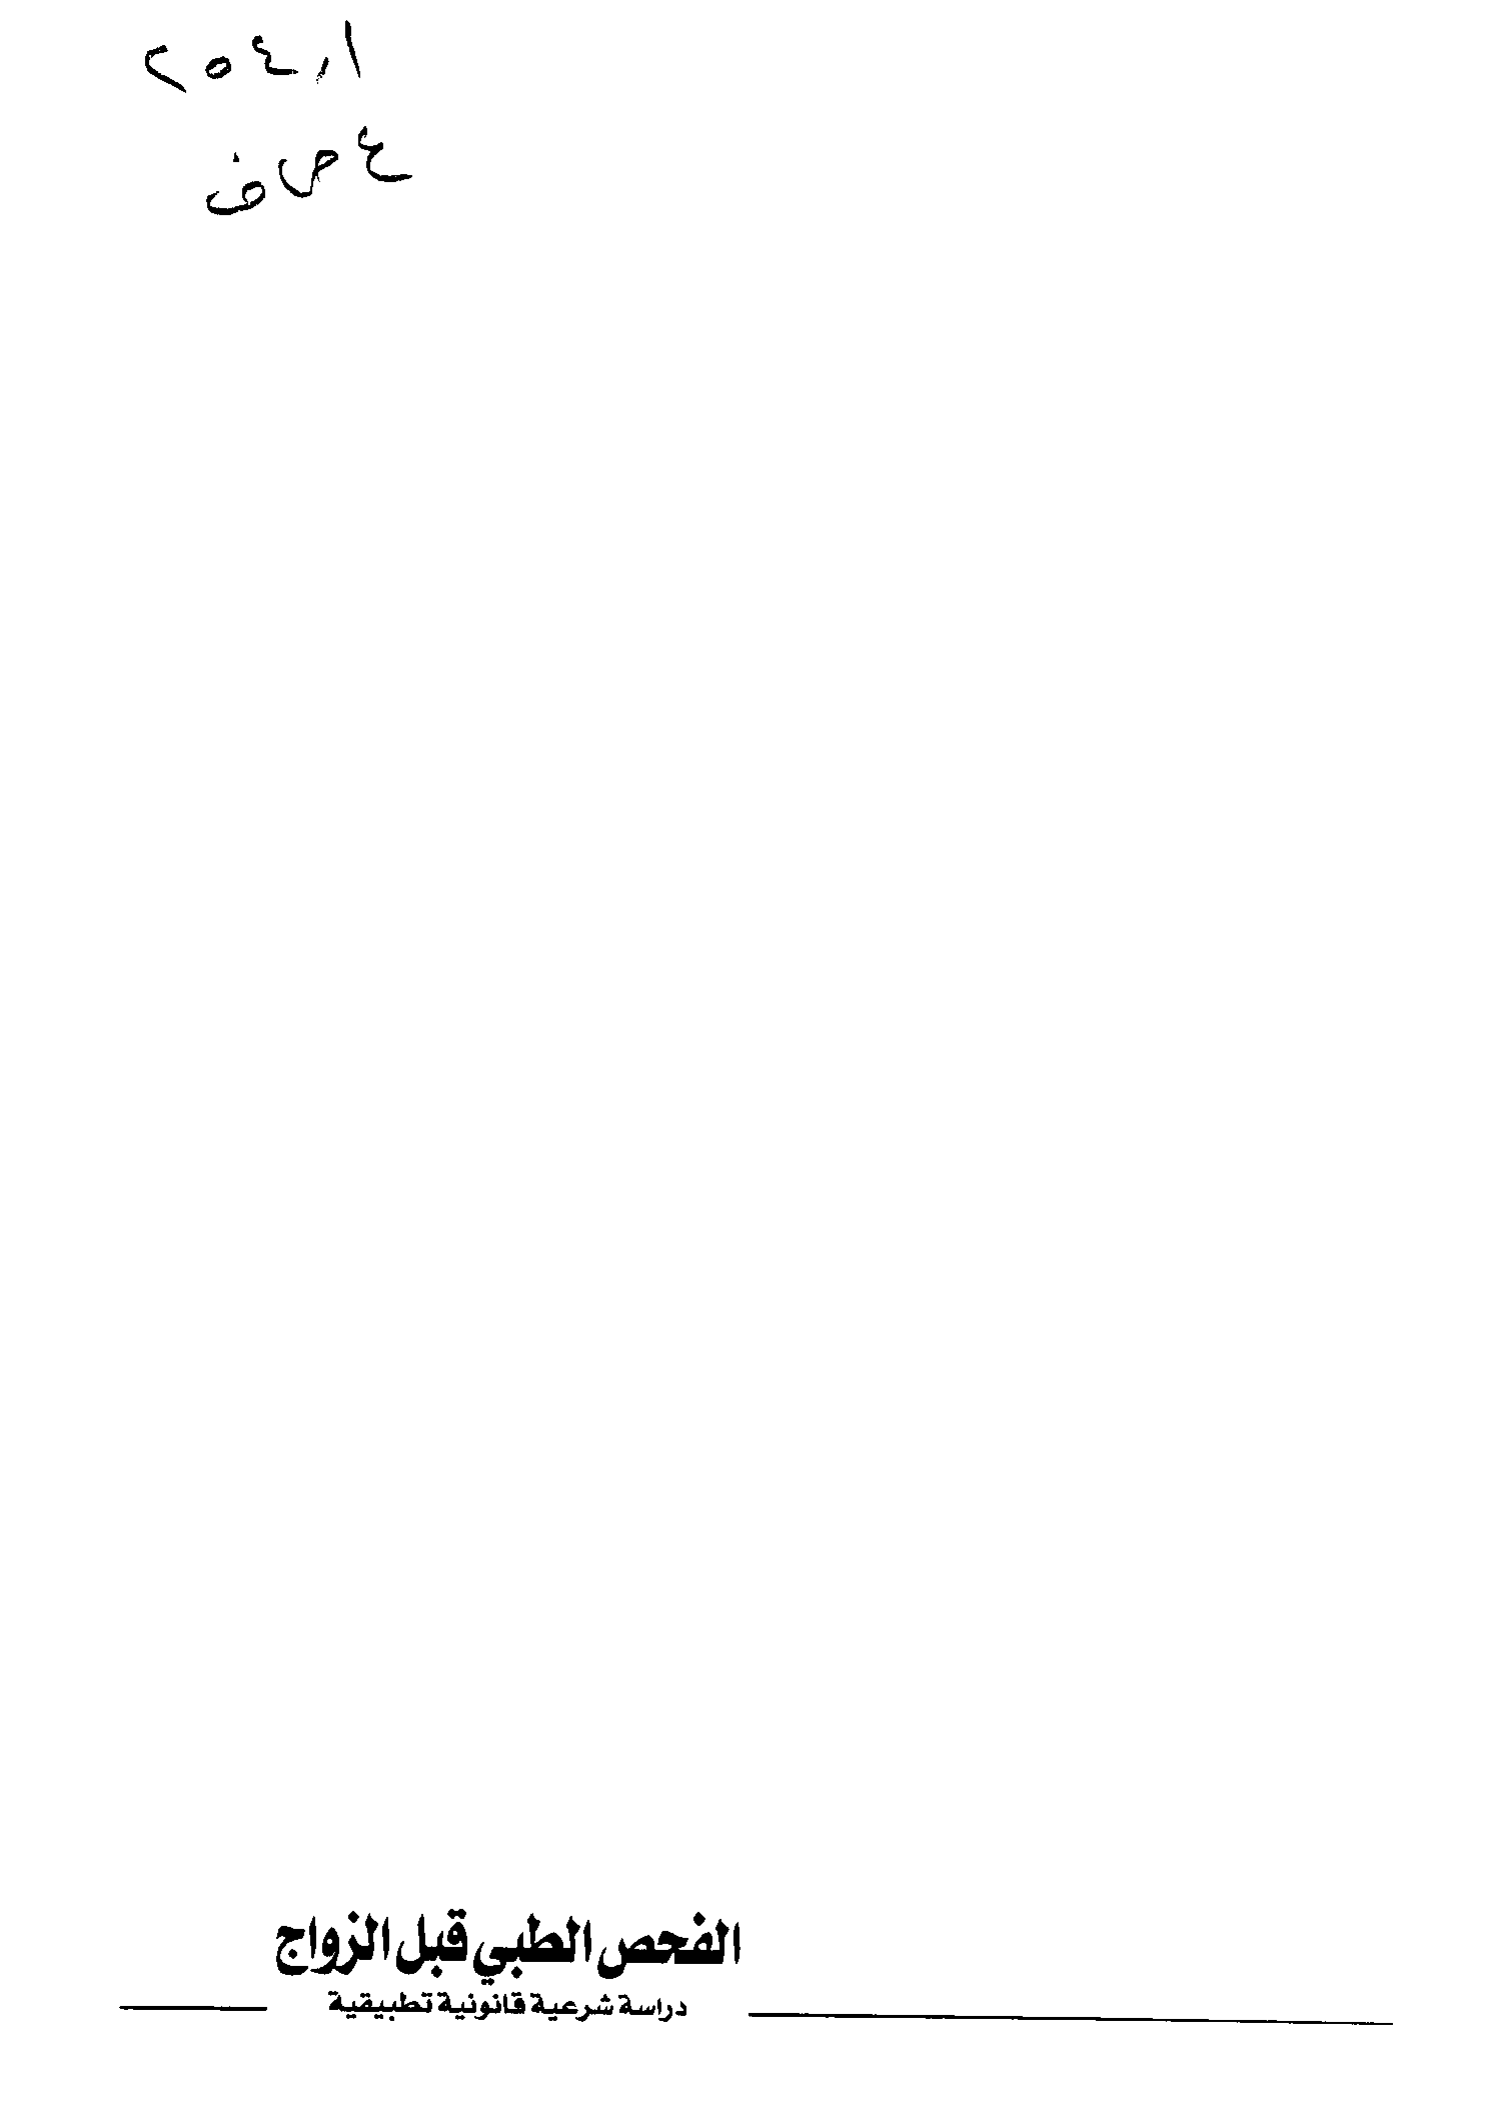 ٢٥٤,١
ع ص ف
الفحص الطبي قبل الزواج
دراسة شرعية قانونية تطبيقية